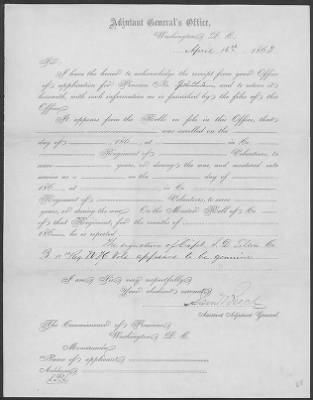 Adjutant General's Office,
Washington, D. C.,
April 16th, 186
Sir:
I have the honor to acknowledge the receipt from your Office
of application for Pension No. and to return it
herewith, with such information as is furnished by the files of this
Office.
It appears from the Rolls on file in this Office, that
was enrolled on the
day of 186 , at in Co.
Regiment of Volunteers, to
serve years, or during the war, and mustered into
service as a on the day of
186 , at in Co.
Regiment of Volunteers, to serve
years, or during the war. On the Muster Roll of Co.
of that Regiment, for the months of
186 , he is reported
The signature of Capt.
B Reg. Vols appears to be genuine
I am, Sir, very respectfully,
Your obedient servant,
Assistant Adjutant General.
The Commissioner of Pensions,
Washington, D. C.
Memoranda:
Name of applicant,
Address,